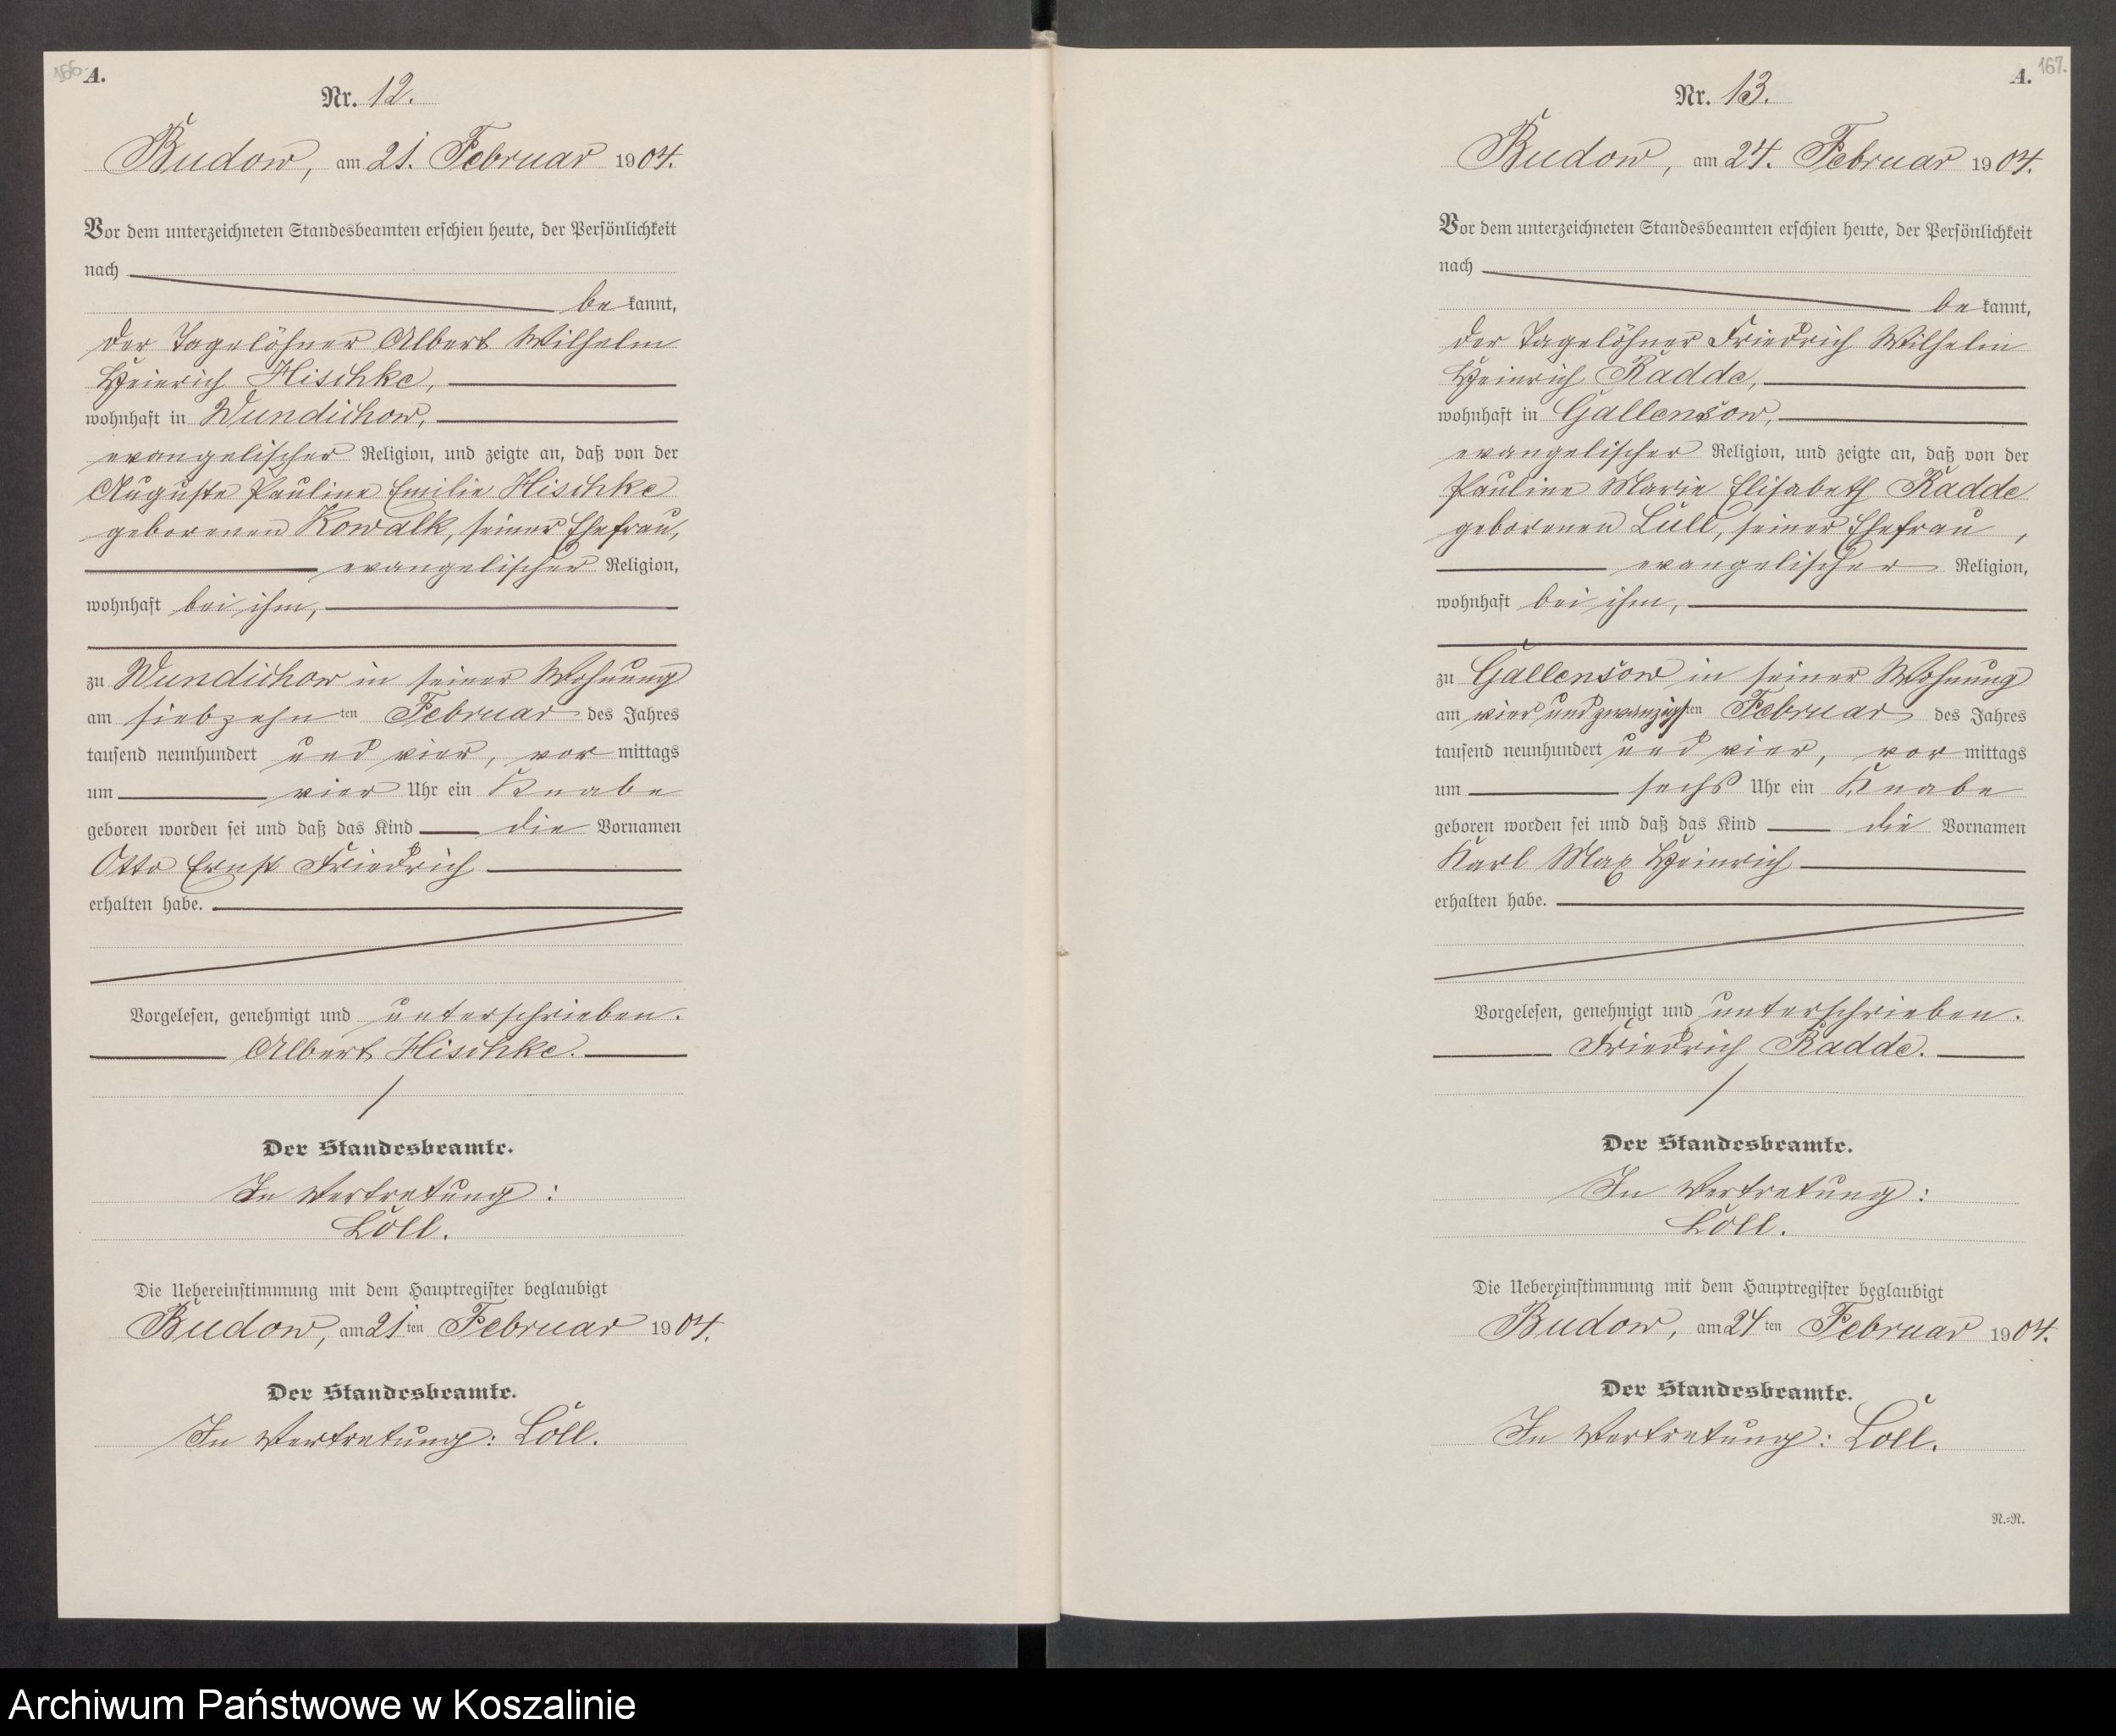 166.
A.
Nr. 12.
Budow, am 21. Februar 1904.
Vor dem unterzeichneten Standesbeamten erschien heute, der Persönlichkeit
nach
be kannt,
der Tagelöhner Albert Wilhelm
Heinrich Hischke,
wohnhaft in Wundichow,
evangelischer Religion, und zeigte an, daß von der
Auguste Pauline Emilie Hischke
geborenen Kowalk, seiner Ehefrau,
evangelischer Religion,
wohnhaft bei ihm,
zu Wundichow in seiner Wohnung
am siebzehnten Februar des Jahres
tausend neunhundert und vier, vor mittags
um vier Uhr ein Knabe
geboren worden sei und daß das Kind die Vornamen
Otto Ernst Friedrich
erhalten habe.
Vorgelesen, genehmigt und unterschrieben.
Albert Hischke.
Der Standesbeamte.
In Vertretung:
Löll.
Die Uebereinstimmung mit dem Hauptregister beglaubigt
Budow, am 21ten Februar 1904.
Der Standesbeamte.
In Vertretung: Löll.
167.
A.
Nr. 13.
Budow, am 24. Februar 1904.
Vor dem unterzeichneten Standesbeamten erschien heute, der Persönlichkeit
nach
be kannt,
der Tagelöhner Friedrich Wilhelm
Heinrich Radde,
wohnhaft in Gallensow,
evangelischer Religion, und zeigte an, daß von der
Pauline Marie Elisabeth Radde
geborenen Lüll, seiner Ehefrau,
evangelischer Religion,
wohnhaft bei ihm,
zu Gallensow in seiner Wohnung
am vier und zwanzigsten Februar des Jahres
tausend neunhundert und vier, vor mittags
um sechs Uhr ein Knabe
geboren worden sei und daß das Kind die Vornamen
Karl Max Heinrich
erhalten habe.
Vorgelesen, genehmigt und unterschrieben.
Friedrich Radde.
Der Standesbeamte.
In Vertretung:
Löll.
Die Uebereinstimmung mit dem Hauptregister beglaubigt
Budow, am 24ten Februar 1904.
Der Standesbeamte.
In Vertretung: Löll.
N.=N.
Archiwum Państwowe w Koszalinie